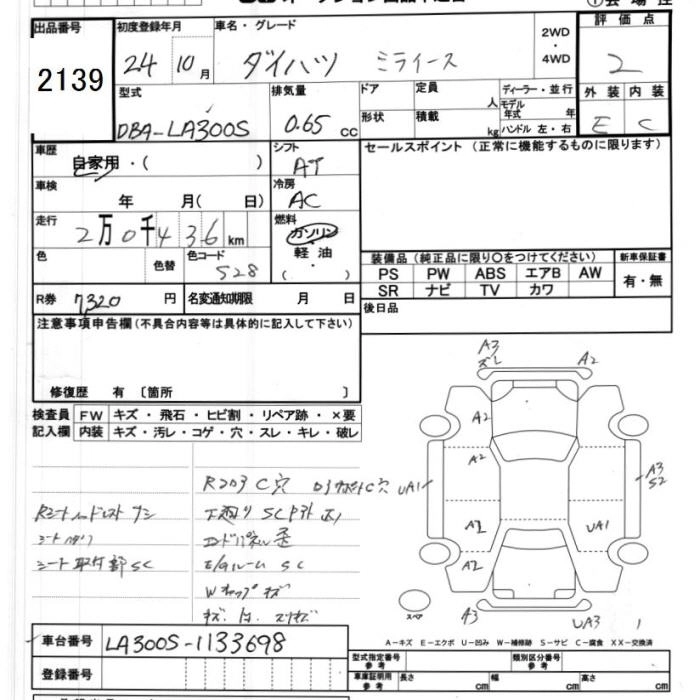 出品番号 初度登録年月 車名・グレード 2WD・4WD 評価点
2139 24 10月 ダイハツ ミライース 2
型式 排気量 ドア 定員 人 ディーラー・並行 外装 内装
DBA-LA300S 0.65 cc 形状 積載 kg モデル年式 年 ハンドル 左・右 E C
車歴 自家用・( ) シフト AT セールスポイント (正常に機能するものに限ります)
車検 年 月( 日) 冷房 AC
走行 2万0千436km 燃料 ガソリン 軽油 ( )
色 色替 色コード S28
装備品 (純正品に限り○をつけてください) 新車保証書
PS PW ABS エアB AW 有・無
SR ナビ TV カワ
R券 7,320円 名変通知期限 月 日 後日品
注意事項申告欄(不具合内容等は具体的に記入して下さい)
修復歴 有 〔箇所 〕
検査員 FW キズ・飛石・ヒビ割・リペア跡・×要
記入欄 内装 キズ・汚レ・コゲ・穴・スレ・キレ・破レ
A3 ズレ A2
A2
A2
UA1 A3 S2
A2 UA1
A2
A3 UA3
スペア
C穴
下廻り SC
シート取付部 SC
E/Gルーム SC
Wキズ
A-キズ E-エクボ U-凹み W-補修跡 S-サビ C-腐食 XX-交換済
車台番号 LA300S-1133698
登録番号
型式指定番号 参考 類別区分番号 参考
車庫証明用 参考 長さ cm 幅 cm 高さ cm